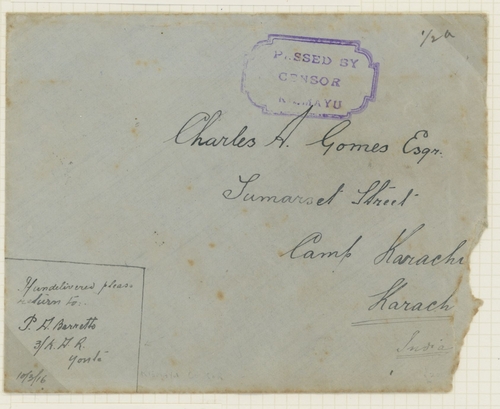 1/2a
PASSED BY
CENSOR
KISMAYU
Charles A. Gomes Esqr.
Sumarset Street
Camp Karachi
Karach
India
If undelivered please
return to:-
P. A. Barretto
3/K. A. R.
Yonte
10/3/16